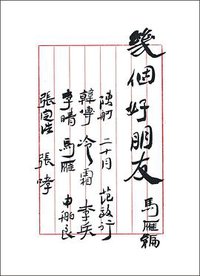 幾個好朋友
馬雁編
陳舸 二十月 范致行
韓博 冷霜 李兵
李晴 馬雁 申舶良
張宝浩 張哮